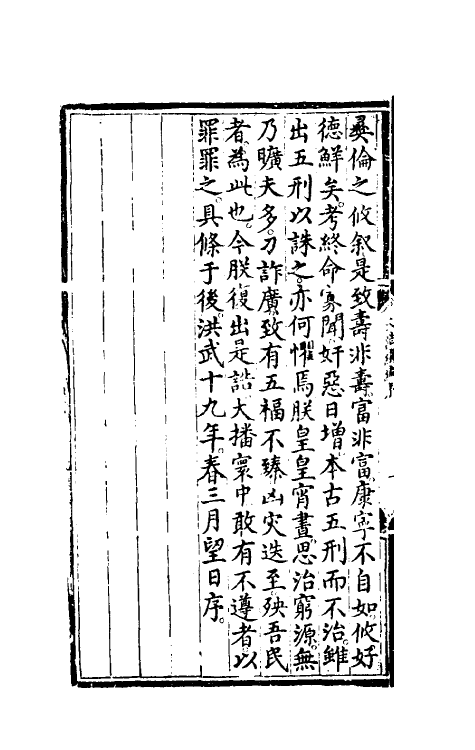 彝倫之攸叙是致壽非壽富非富康寧不自如攸好
德鮮矣考終命寡聞奸惡日增本古五刑而不治雖
出五刑以誅之亦何懼焉朕皇皇宵晝思治窮源無
乃曠夫多刁詐廣致有五福不臻凶灾迭至殃吾民
者為此也今朕復出是誥大播寰中敢有不遵者以
罪罪之具條于後洪武十九年春三月望日序